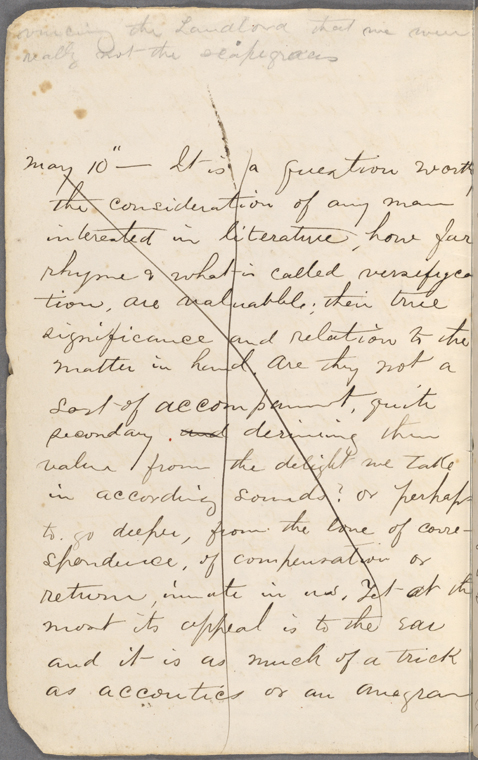 vincing the Landlord that we were
really not the scapegraces
May 10" — It is a question worth
the consideration of any man
interested in literature, how far
rhyme & what is called versifyca
tion, are valuabble; their true
significance and relation to the
matter in hand. Are they not a
sort of accompanment, quite
secondary and deriving their
value from the delight we take
in according sounds? or perhaps
to go deeper, from the love of corre-
spondence, of compensation or
return, innate in us. Yet at the
most its appeal is to the ear
and it is as much of a trick
as accoustics or an anagram